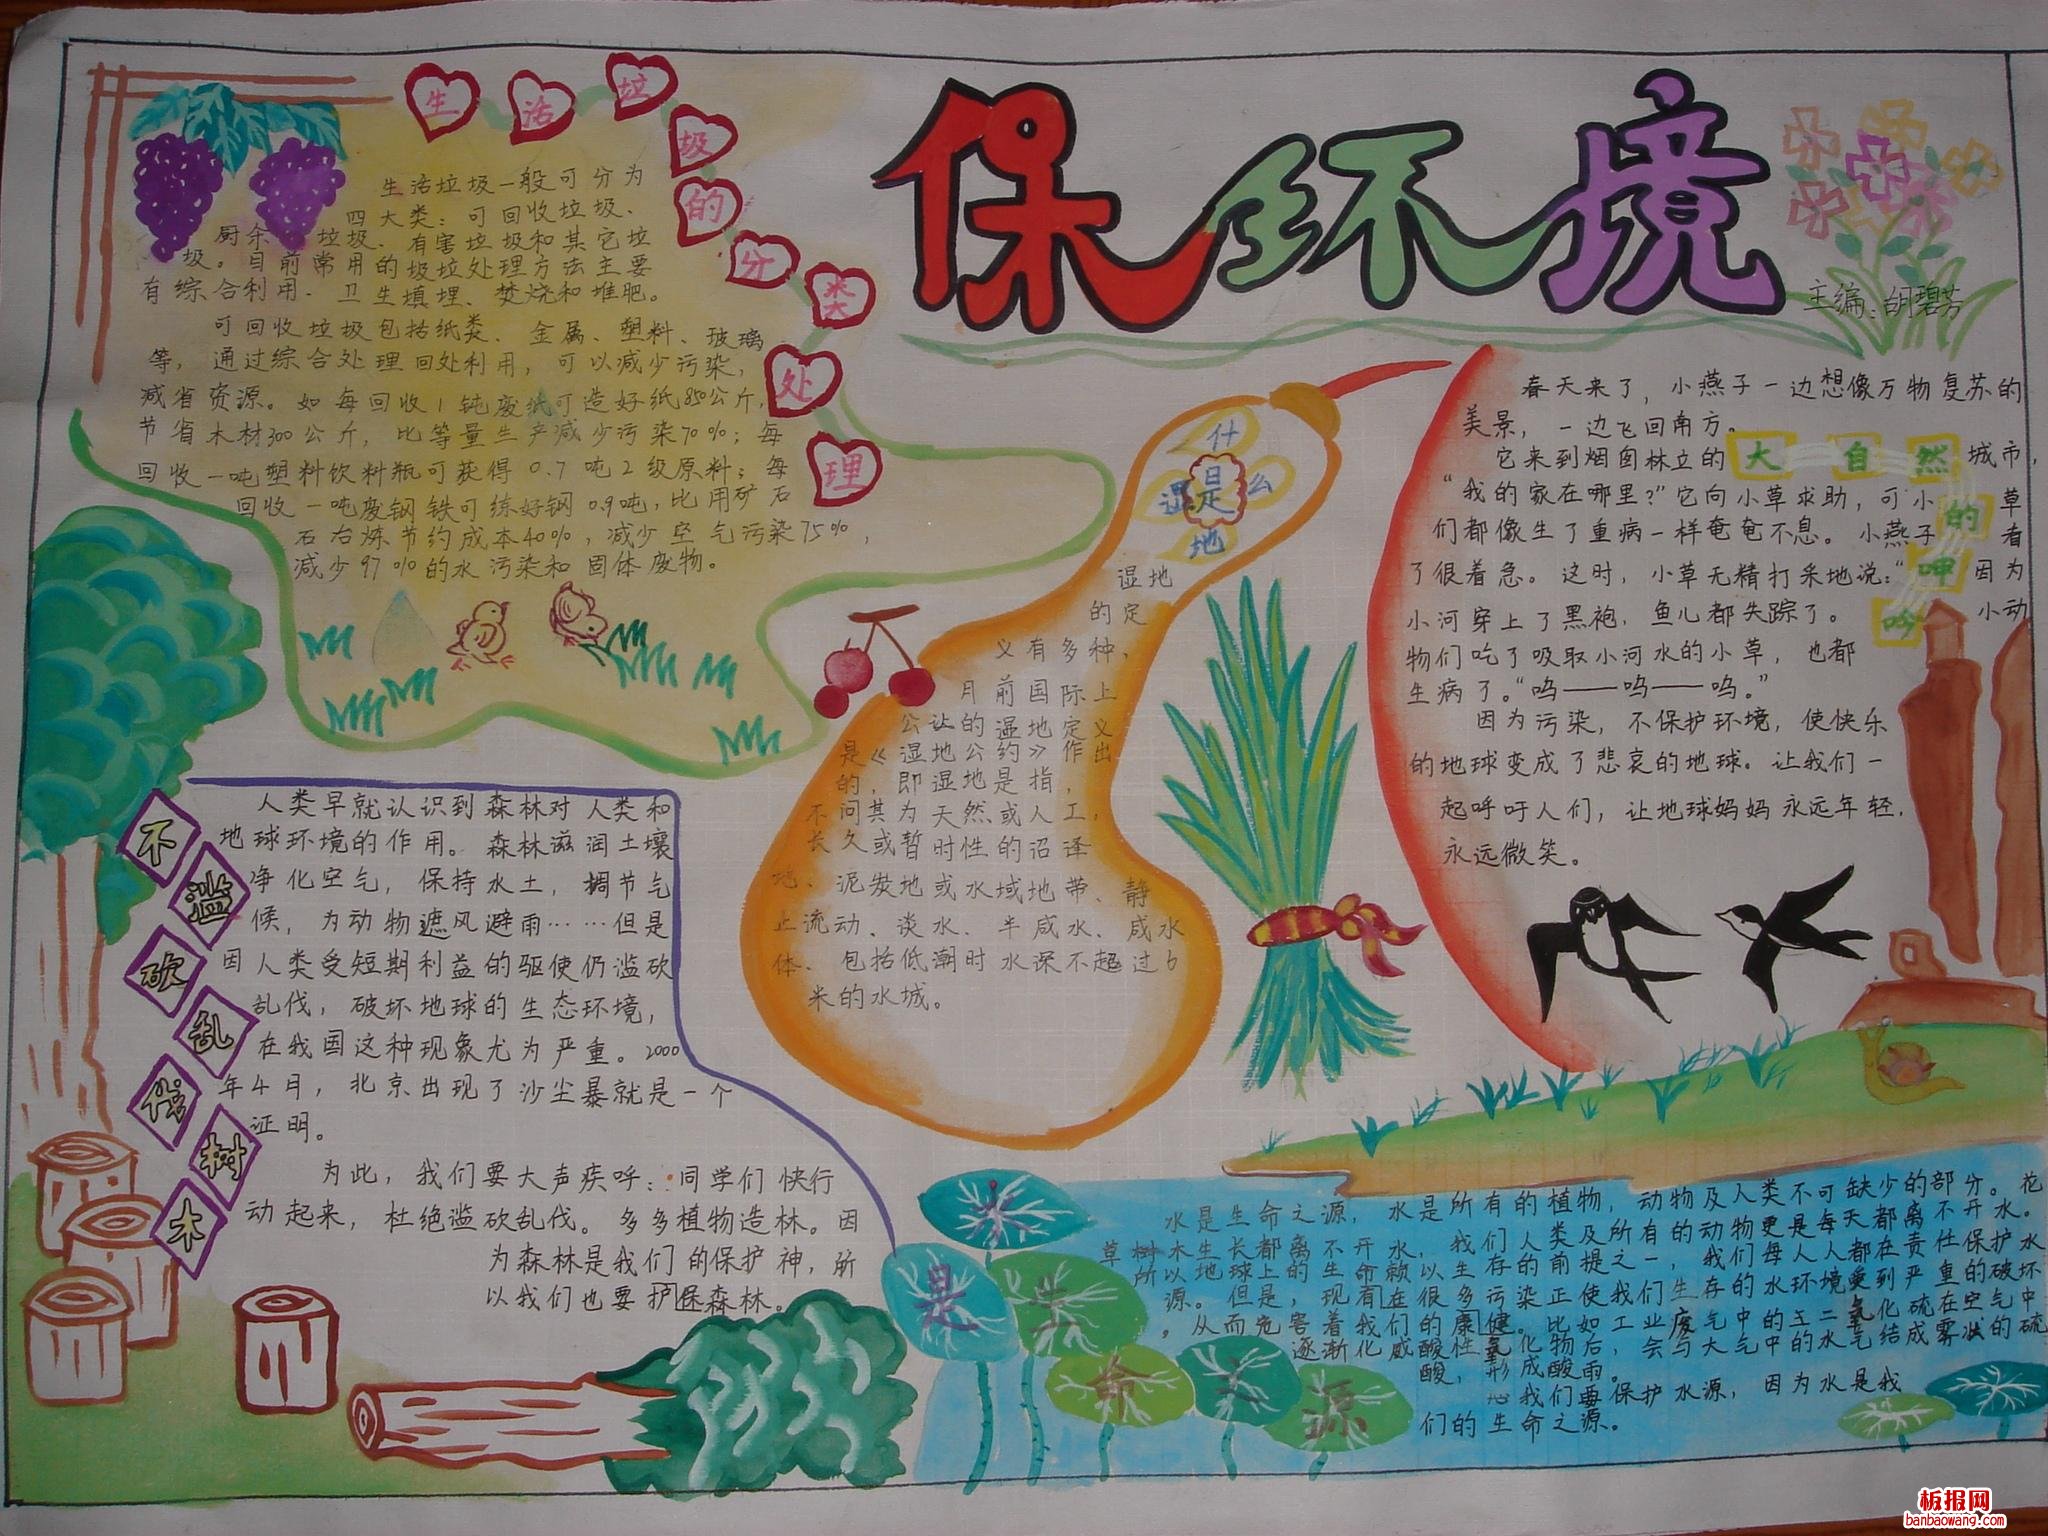 保环境
主编:胡碧芳
生活垃圾的分类处理
生活垃圾一般可分为
四大类:可回收垃圾、
厨余垃圾、有害垃圾和其它垃
圾。目前常用的圾垃处理方法主要
有综合利用、卫生填埋、焚烧和堆肥。
可回收垃圾包括纸类、金属、塑料、玻璃
等,通过综合处理回处利用,可以减少污染,
减省资源。如每回收1钝废纸可造好纸850公斤,
节省木材300公斤,比等量生产减少污染70%;每
回收一吨塑料饮料瓶可获得0.7吨2级原料;每
回收一吨废钢铁可练好钢0.9吨,比用矿石
石冶炼节约成本40%,减少空气污染75%,
减少97%的水污染和固体废物。
什么是湿地
湿地
的定
义有多种、
月前国际上
公让的湿地定义
是《湿地公约》作出
的,即湿地是指,
不问其为天然或人工,
长久或暂时性的沼译
地、泥炭地或水域地带、静
止流动、淡水、半咸水、咸水
体、包括低潮时水深不超过6
米的水城。
大自然的呻吟
春天来了,小燕子一边想像万物复苏的
美景,一边飞回南方。
它来到烟囱林立的城市,
“我的家在哪里?”它向小草求助,可小草
们都像生了重病一样奄奄不息。小燕子看
了很着急。这时,小草无精打采地说:“因为
小河穿上了黑袍,鱼儿都失踪了。小动
物们吃了吸取小河水的小草,也都
生病了。“呜——呜——呜。”
因为污染,不保护环境,使快乐
的地球变成了悲哀的地球。让我们一
起呼吁人们,让地球妈妈永远年轻,
永远微笑。
不滥砍乱伐树木
人类早就认识到森林对人类和
地球环境的作用。森林滋润土壤
净化空气,保持水土,调节气
候,为动物遮风避雨……但是
因人类受短期利益的驱使仍滥砍
乱伐,破坏地球的生态环境,
在我国这种现象尤为严重。2000
年4月,北京出现了沙尘暴就是一个
证明。
为此,我们要大声疾呼:同学们快行
动起来,杜绝滥砍乱伐。多多植物造林。因
为森林是我们的保护神,所
以我们也要护保森林。
水是生命之源
水是生命之源,水是所有的植物,动物及人类不可缺少的部分。花
草树木生长都离不开水,我们人类及所有的动物更是每天都离不开水。
所以地球上的生命赖以生存的前提之一,我们每人人都在责任保护水
源。但是,现有在很多污染正使我们生存的水环境受到严重的破坏
,从而危害着我们的康健。比如工业废气中的二氧化硫在空气中
逐渐化成酸性氧化物后,会与大气中的水气结成雾状的硫
酸,形成酸雨。
我们要保护水源,因为水是我
们的生命之源。
板报网
banbaowang.com